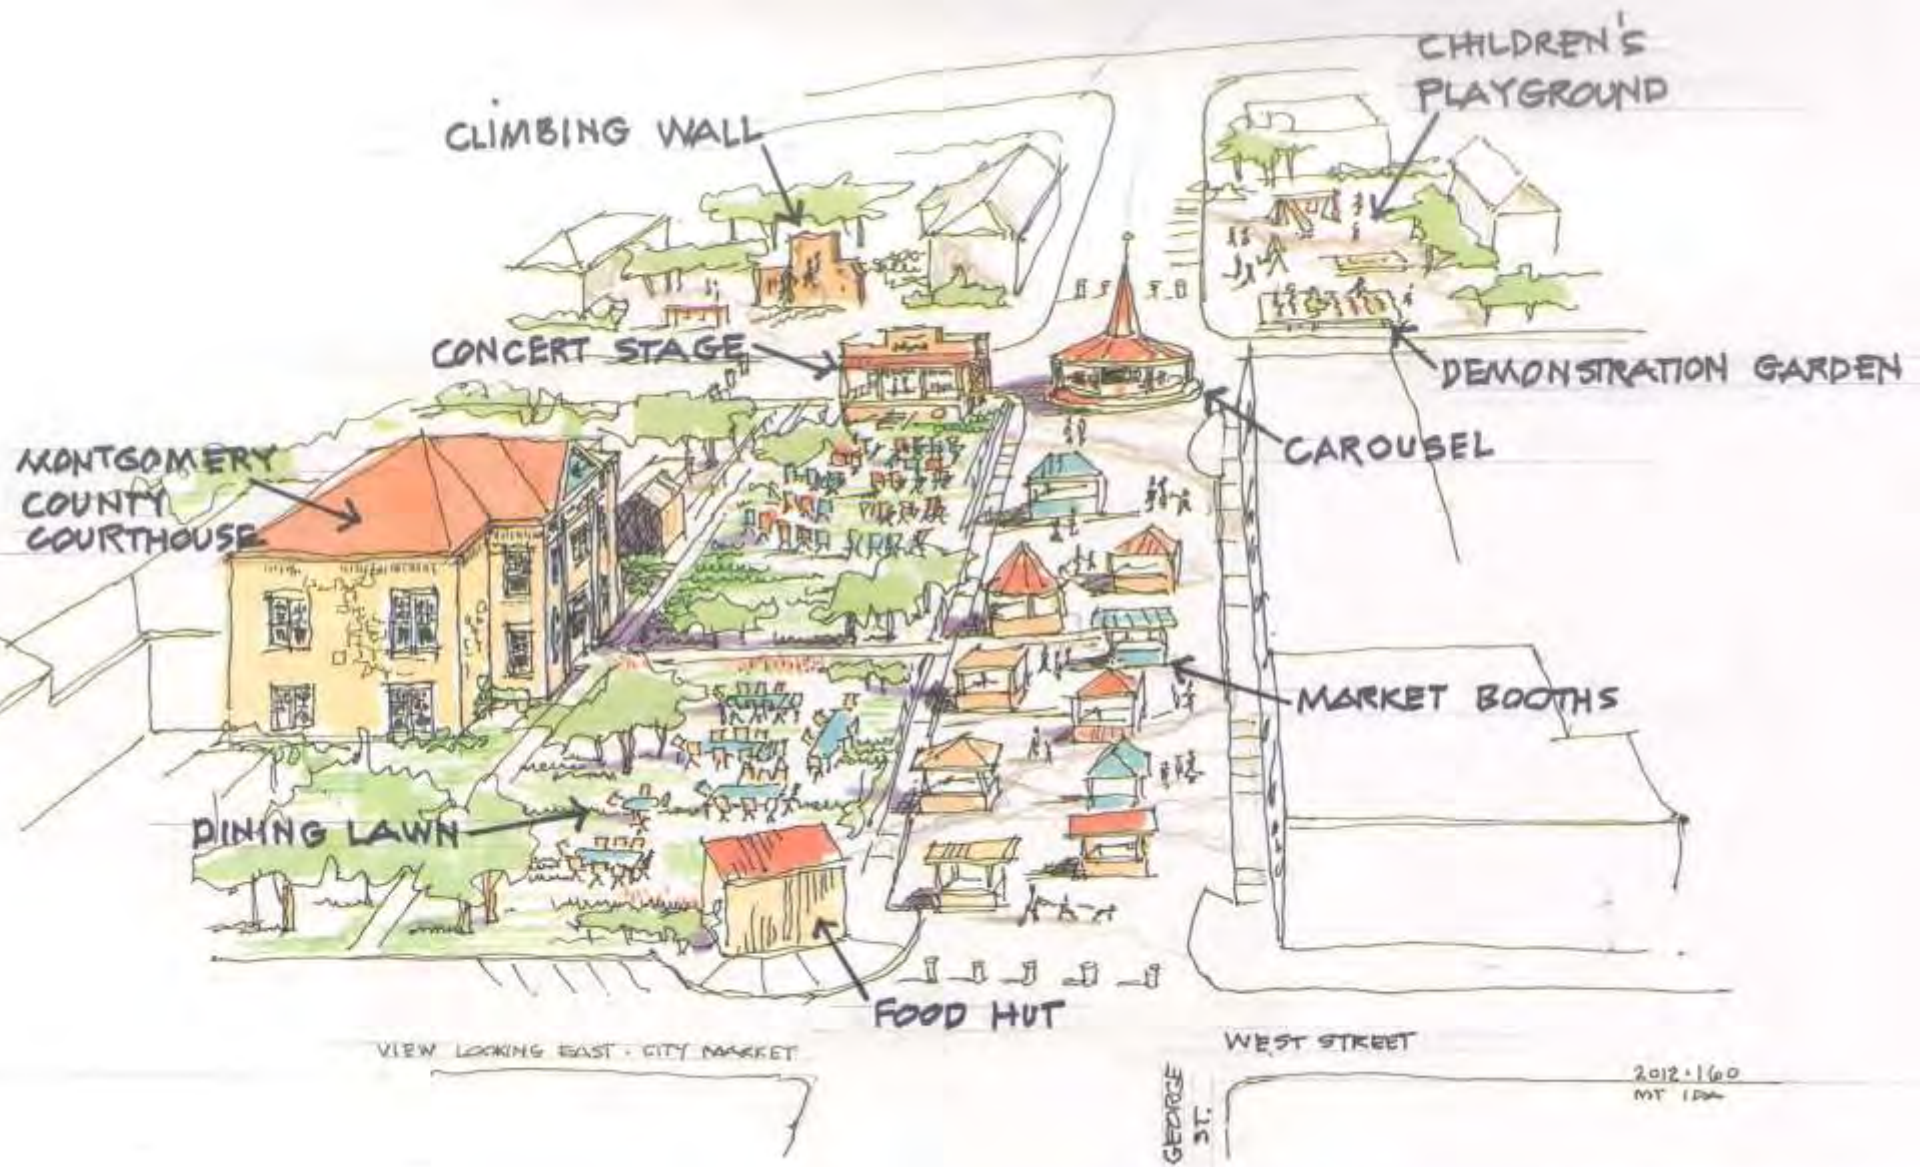 CHILDREN'S
PLAYGROUND
CLIMBING WALL
CONCERT STAGE
DEMONSTRATION GARDEN
CAROUSEL
MONTGOMERY
COUNTY
COURTHOUSE
MARKET BOOTHS
DINING LAWN
FOOD HUT
VIEW LOOKING EAST · CITY MARKET
WEST STREET
GEORGE
ST.
2012·160
MT IDA